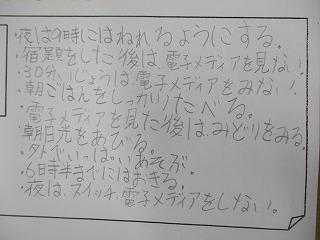 ・夜は9時にはねれるようにする。
・宿題をした後は、電子メディアを見ない!
・30分いじょうは、電子メディアをみない!
・朝ごはんをしっかりたべる。
・電子メディアを見た後は、みどりをみる。
・朝日光をあびる。
・外でいっぱいあそぶ。
・6時半までにはおきる。
・夜は、スイッチ、電子メディアをしない。